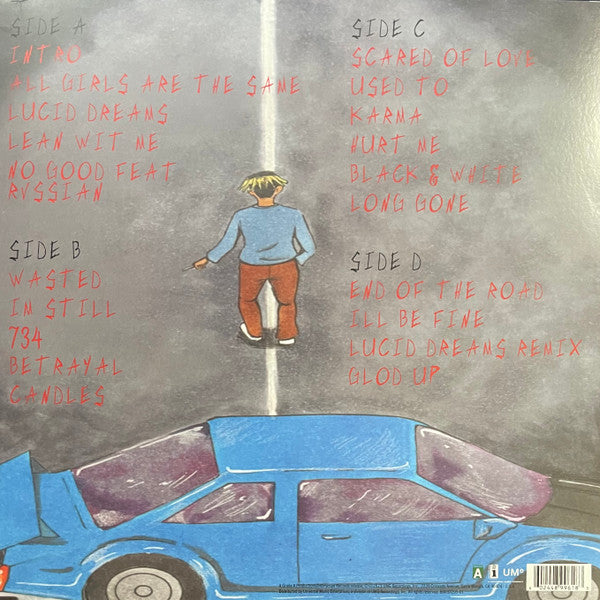 SIDE A
INTRO
ALL GIRLS ARE THE SAME
LUCID DREAMS
LEAN WIT ME
NO GOOD FEAT
RVSSIAN
SIDE B
WASTED
IM STILL
734
BETRAYAL
CANDLES
SIDE C
SCARED OF LOVE
USED TO
KARMA
HURT ME
BLACK & WHITE
LONG GONE
SIDE D
END OF THE ROAD
ILL BE FINE
LUCID DREAMS REMIX
GLOD UP
A
UMe